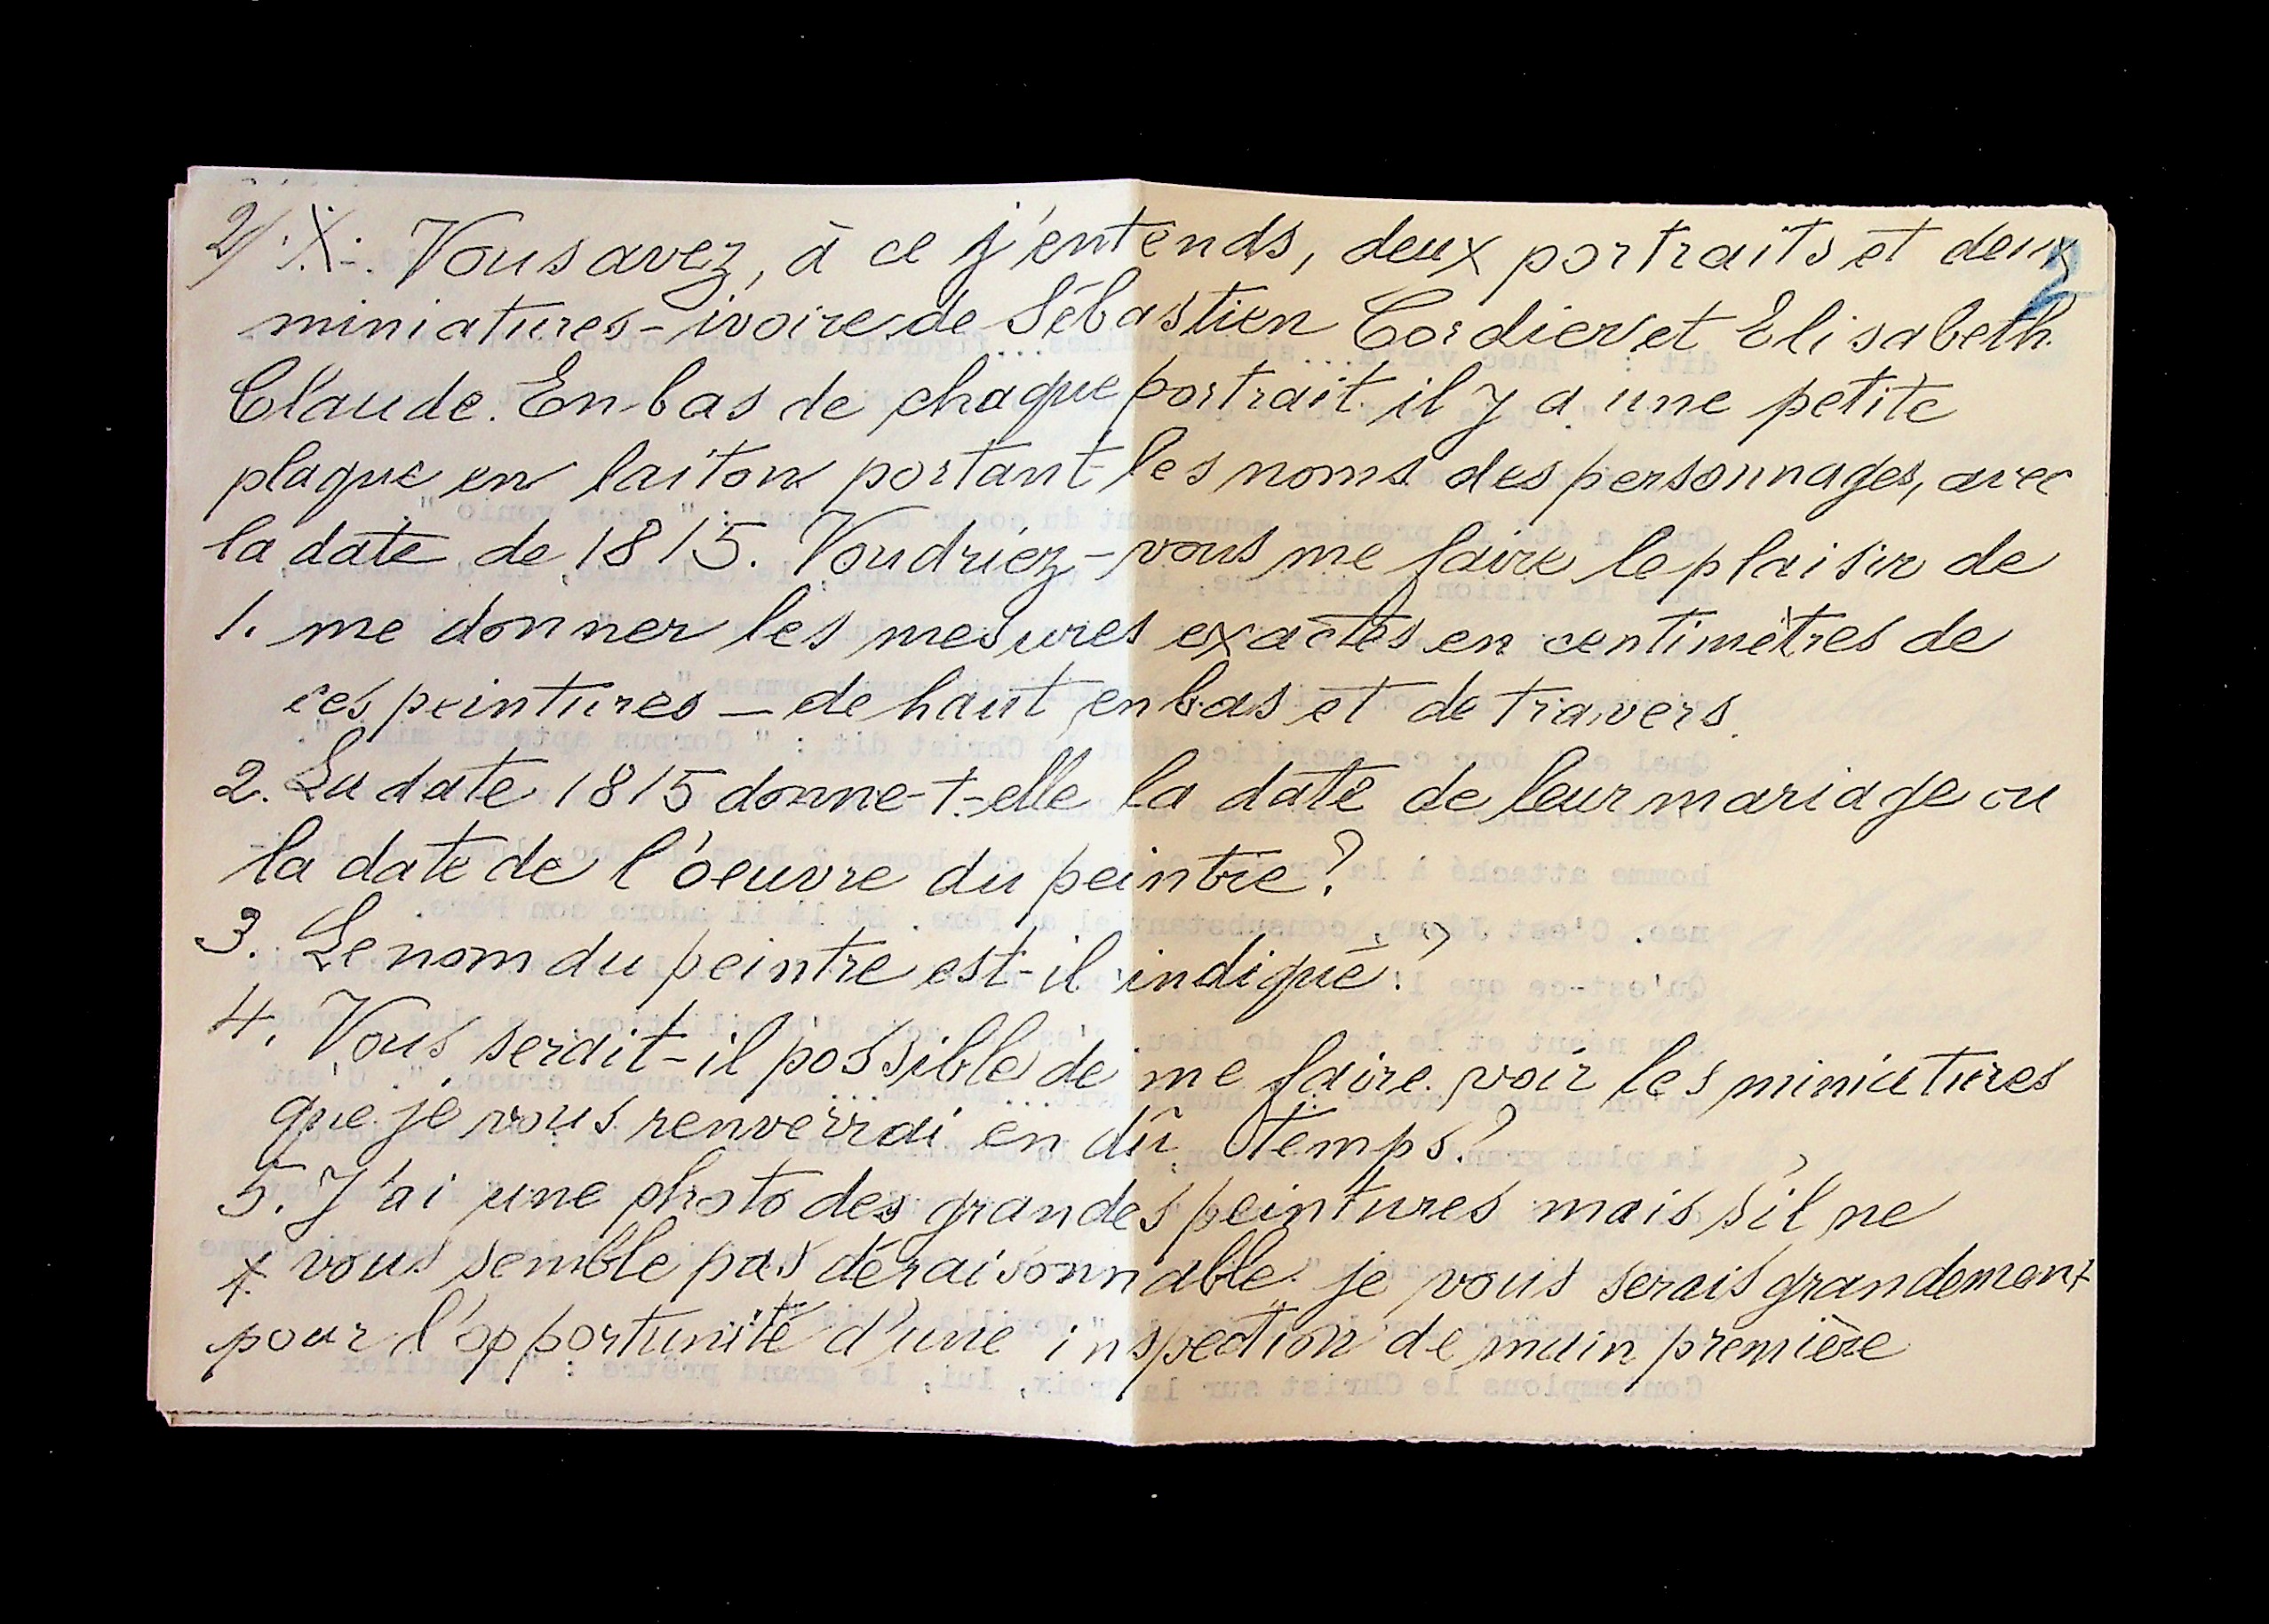 2) X. Vous avez, à ce j'entends, deux portraits et deux
2
miniatures-ivoire de Sébastien Cordier et Elisabeth
Claude. En bas de chaque portrait il y a une petite
plaque en laiton portant les noms des personnages, avec
la date de 1815. Voudriez-vous me faire le plaisir de
1. me donner les mesures exactes en centimètres de
ces peintures — de haut en bas et de travers.
2. La date 1815 donne-t-elle la date de leur mariage ou
la date de l'oeuvre du peintre?
3. Le nom du peintre est-il indiqué?
4. Vous serait-il possible de me faire voir les miniatures
que je vous renverrai en dû temps?
5. J'ai une photo des grandes peintures mais s'il ne
x. vous semble pas déraisonnable je vous serais grandement
pour l'opportunité d'une inspection de main première